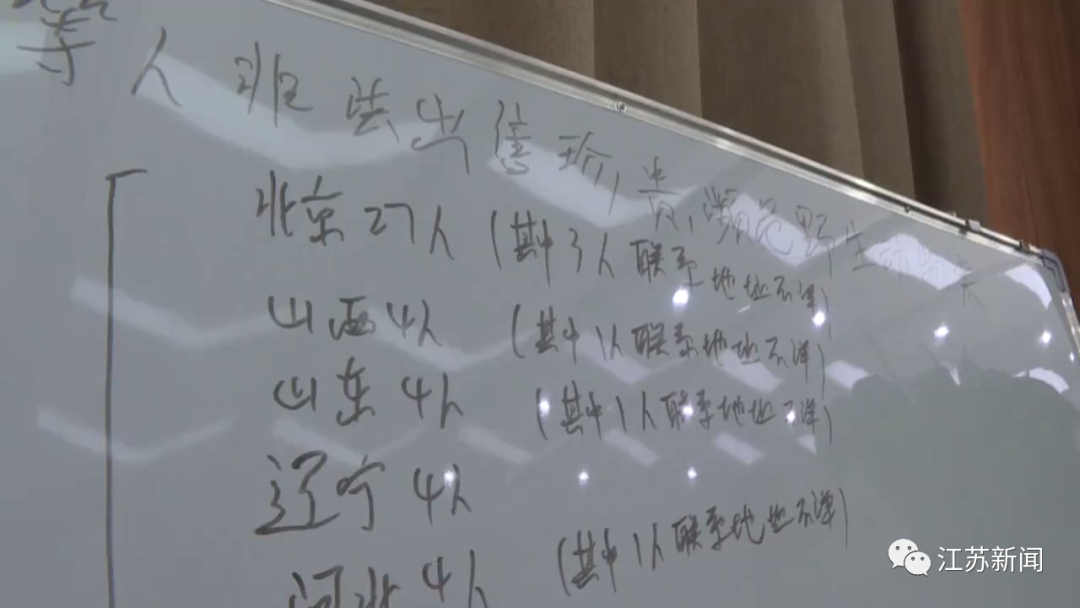 等人非法出售珍贵、濒危野生动物
北京27人(其中3人联系地址不详)
山西4人(其中1人联系地址不详)
山东4人(其中1人联系地址不详)
辽宁4人
河北4人(其中1人联系地址不详)
江苏新闻